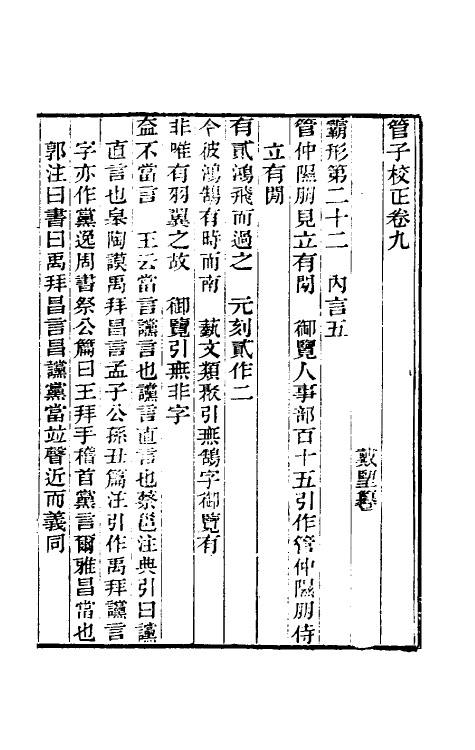 管子校正卷九
戴望學
霸形第二十二　內言五
管仲隰朋見立有閒　御覽人事部百十五引作管仲隰朋侍
立有閒
有貳鴻飛而過之　元刻貳作二
今彼鴻鵠有時而南　藝文類聚引無鵠字御覽有
非唯有羽翼之故　御覽引無非字
盍不當言　王云當言讜言也讜言直言也蔡邕注典引曰讜
直言也皋陶謨禹拜昌言孟子公孫丑篇注引作禹拜讜言
字亦作黨逸周書祭公篇曰王拜手稽首黨言爾雅昌當也
郭注曰書曰禹拜昌言昌讜黨當竝聲近而義同